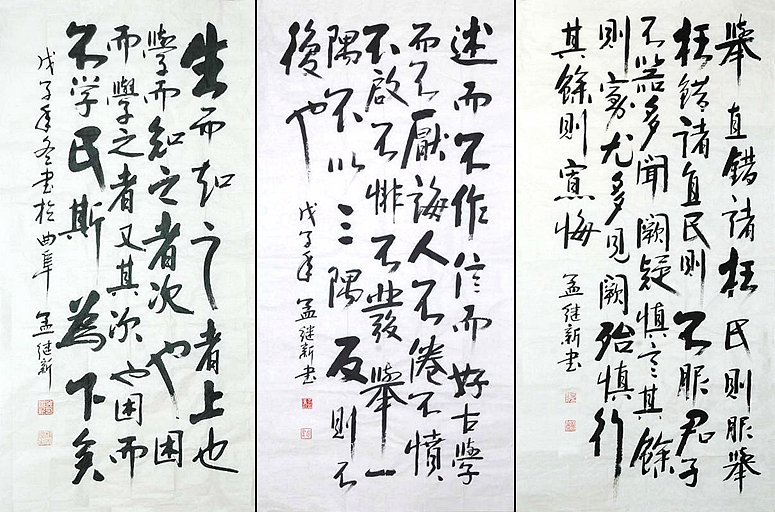 生而知之者上也
學而知之者次也困
而學之者又其次也困而
不学民斯為下矣
戊子年冬书於曲阜 孟继新
述而不作信而好古學
而不厭誨人不倦不憤
不啟不悱不發舉一
隅不以三隅反則不
後也
戊子年 孟继新书
舉直錯諸枉民則服舉
枉錯諸直民則不服君子
不器多聞闕疑慎言其餘
則寡尤多見闕殆慎行
其餘則寡悔
孟继新书